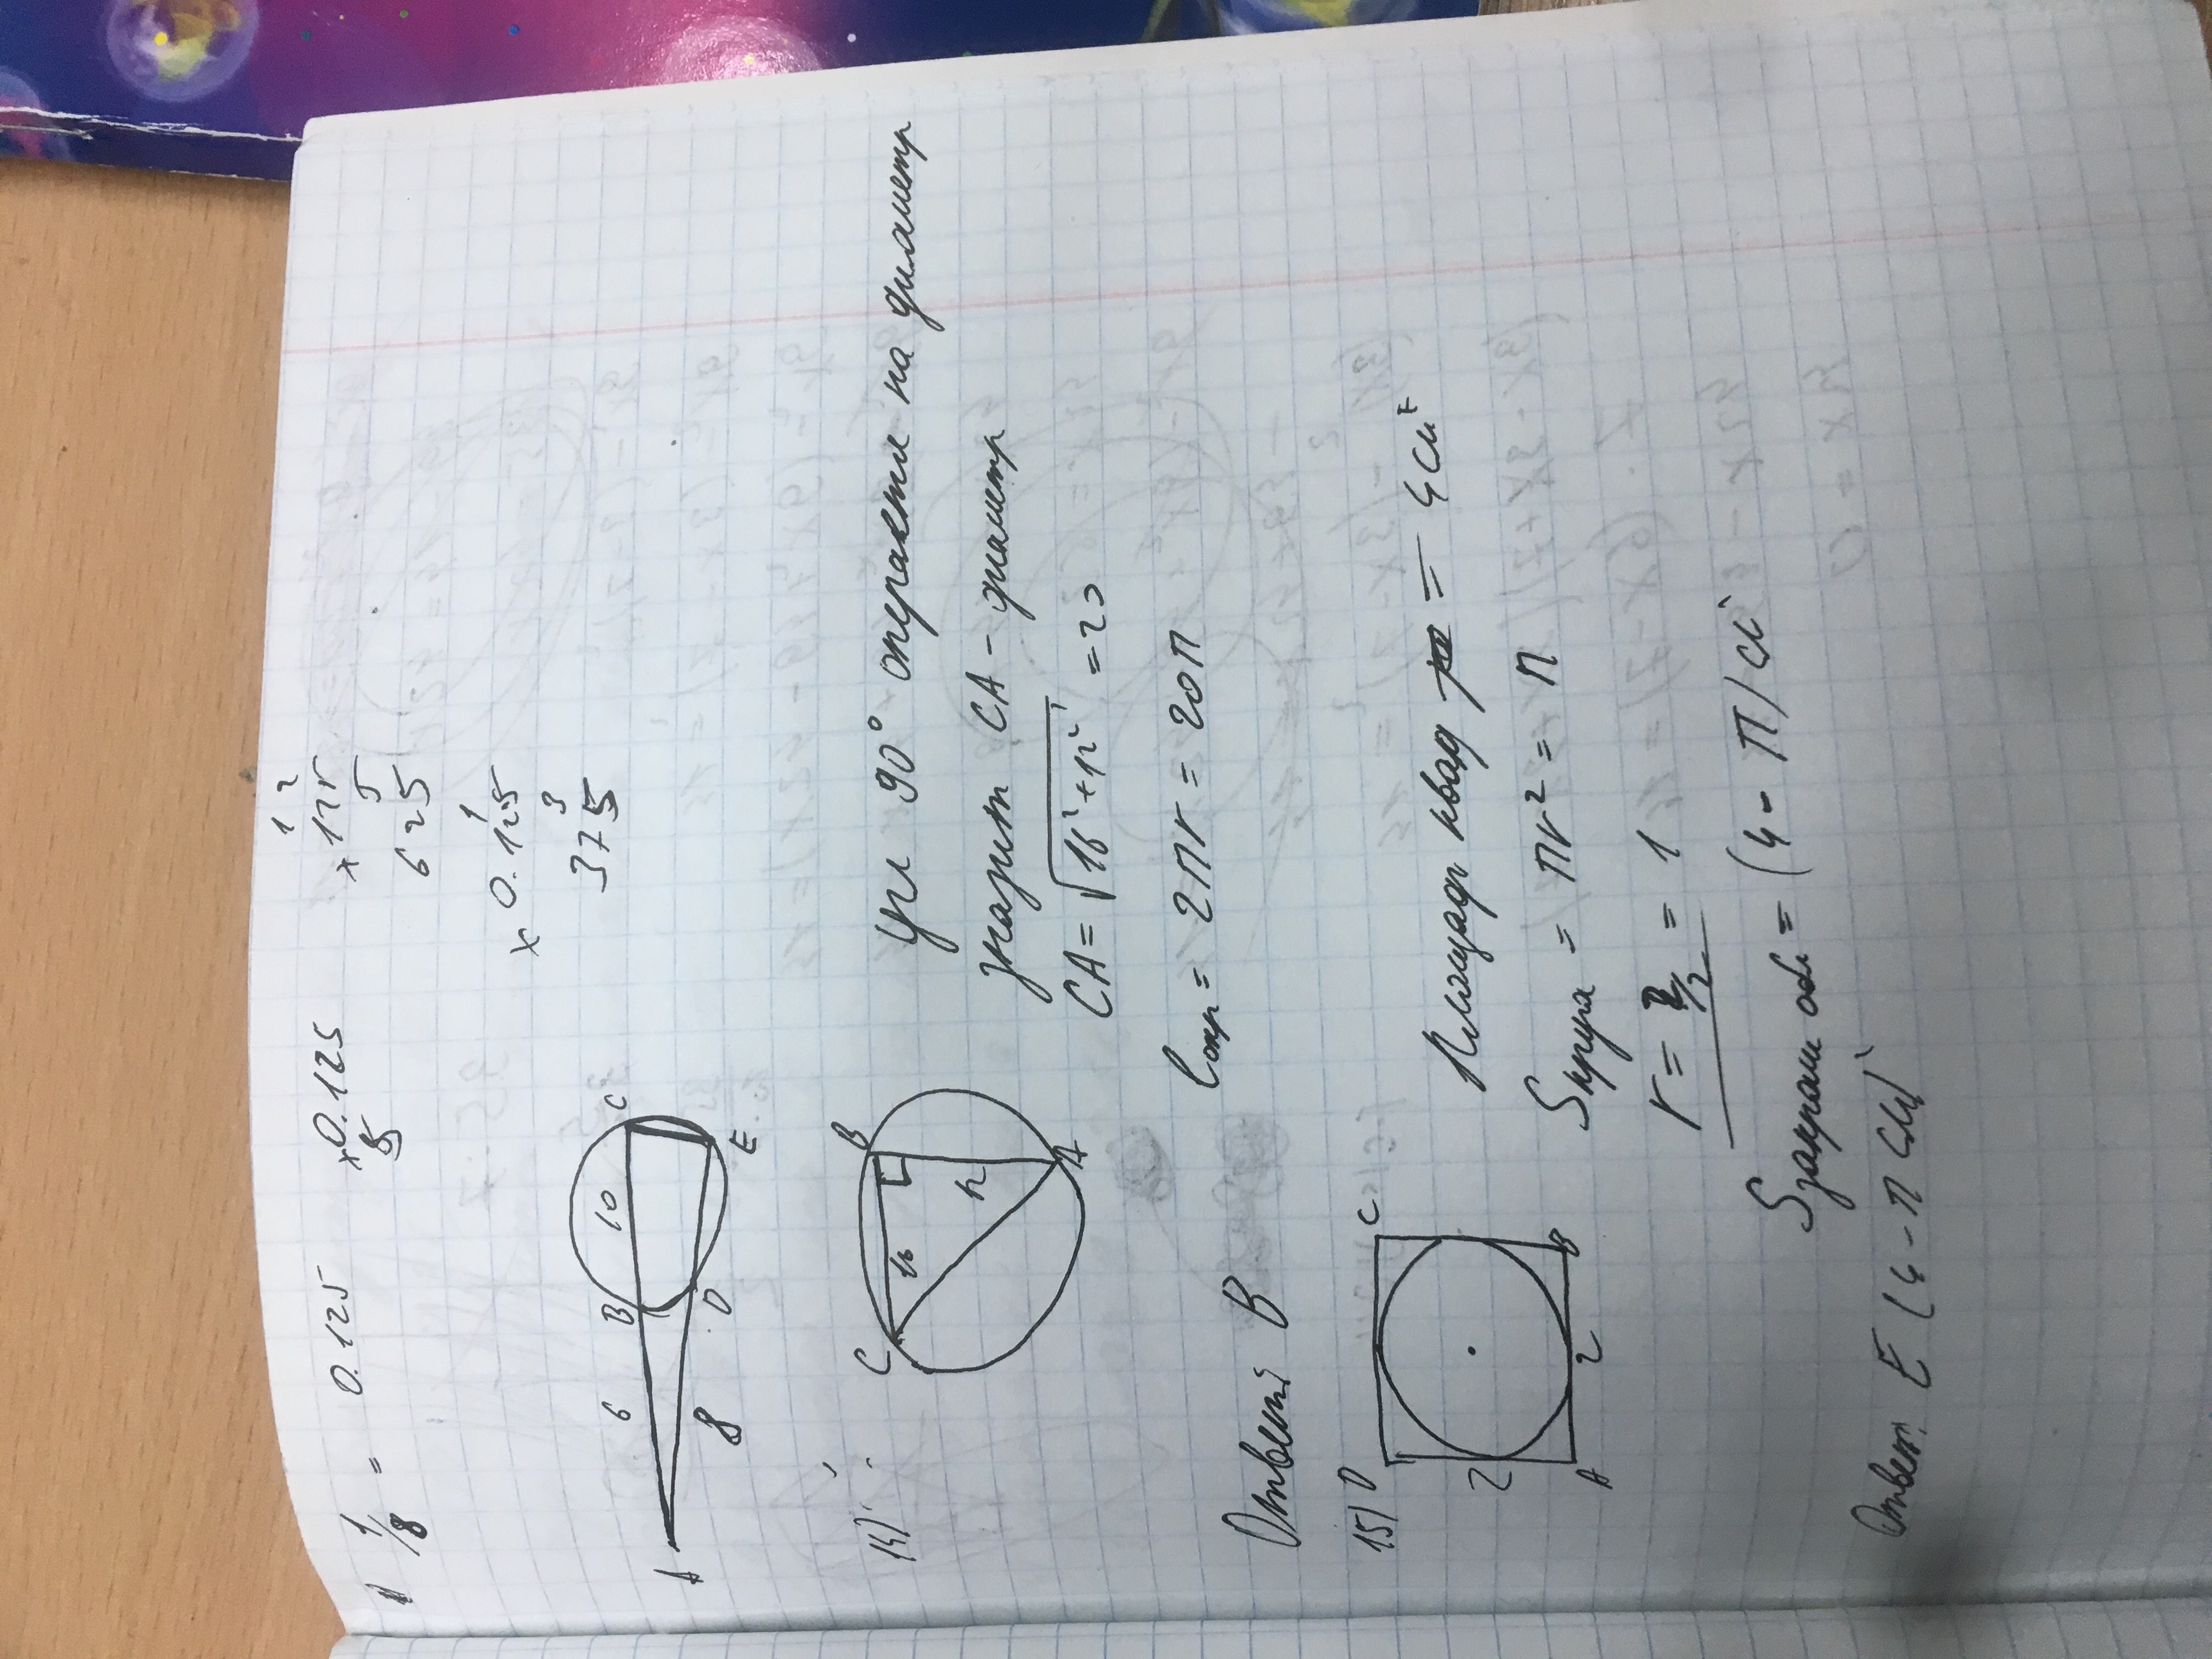 1/8 = 0.125
×0.125
5
1 2
×125
5
625
1
×0.125
3
375
A 6 B 10 C
8 D E
14)
C B
16 12
A
угл 90° опирается на диаметр
значит CA - диаметр
CA = √16²+12² = 20
lокр = 2ПГ = 20П
Ответ В
15)
D C
2
A 2 B
Площадь квад = 4 см²
Sкруга = Пr² = П
r = 2/2 = 1
Sзакраш обл = (4 - П) см²
Ответ: E (4 - П см²